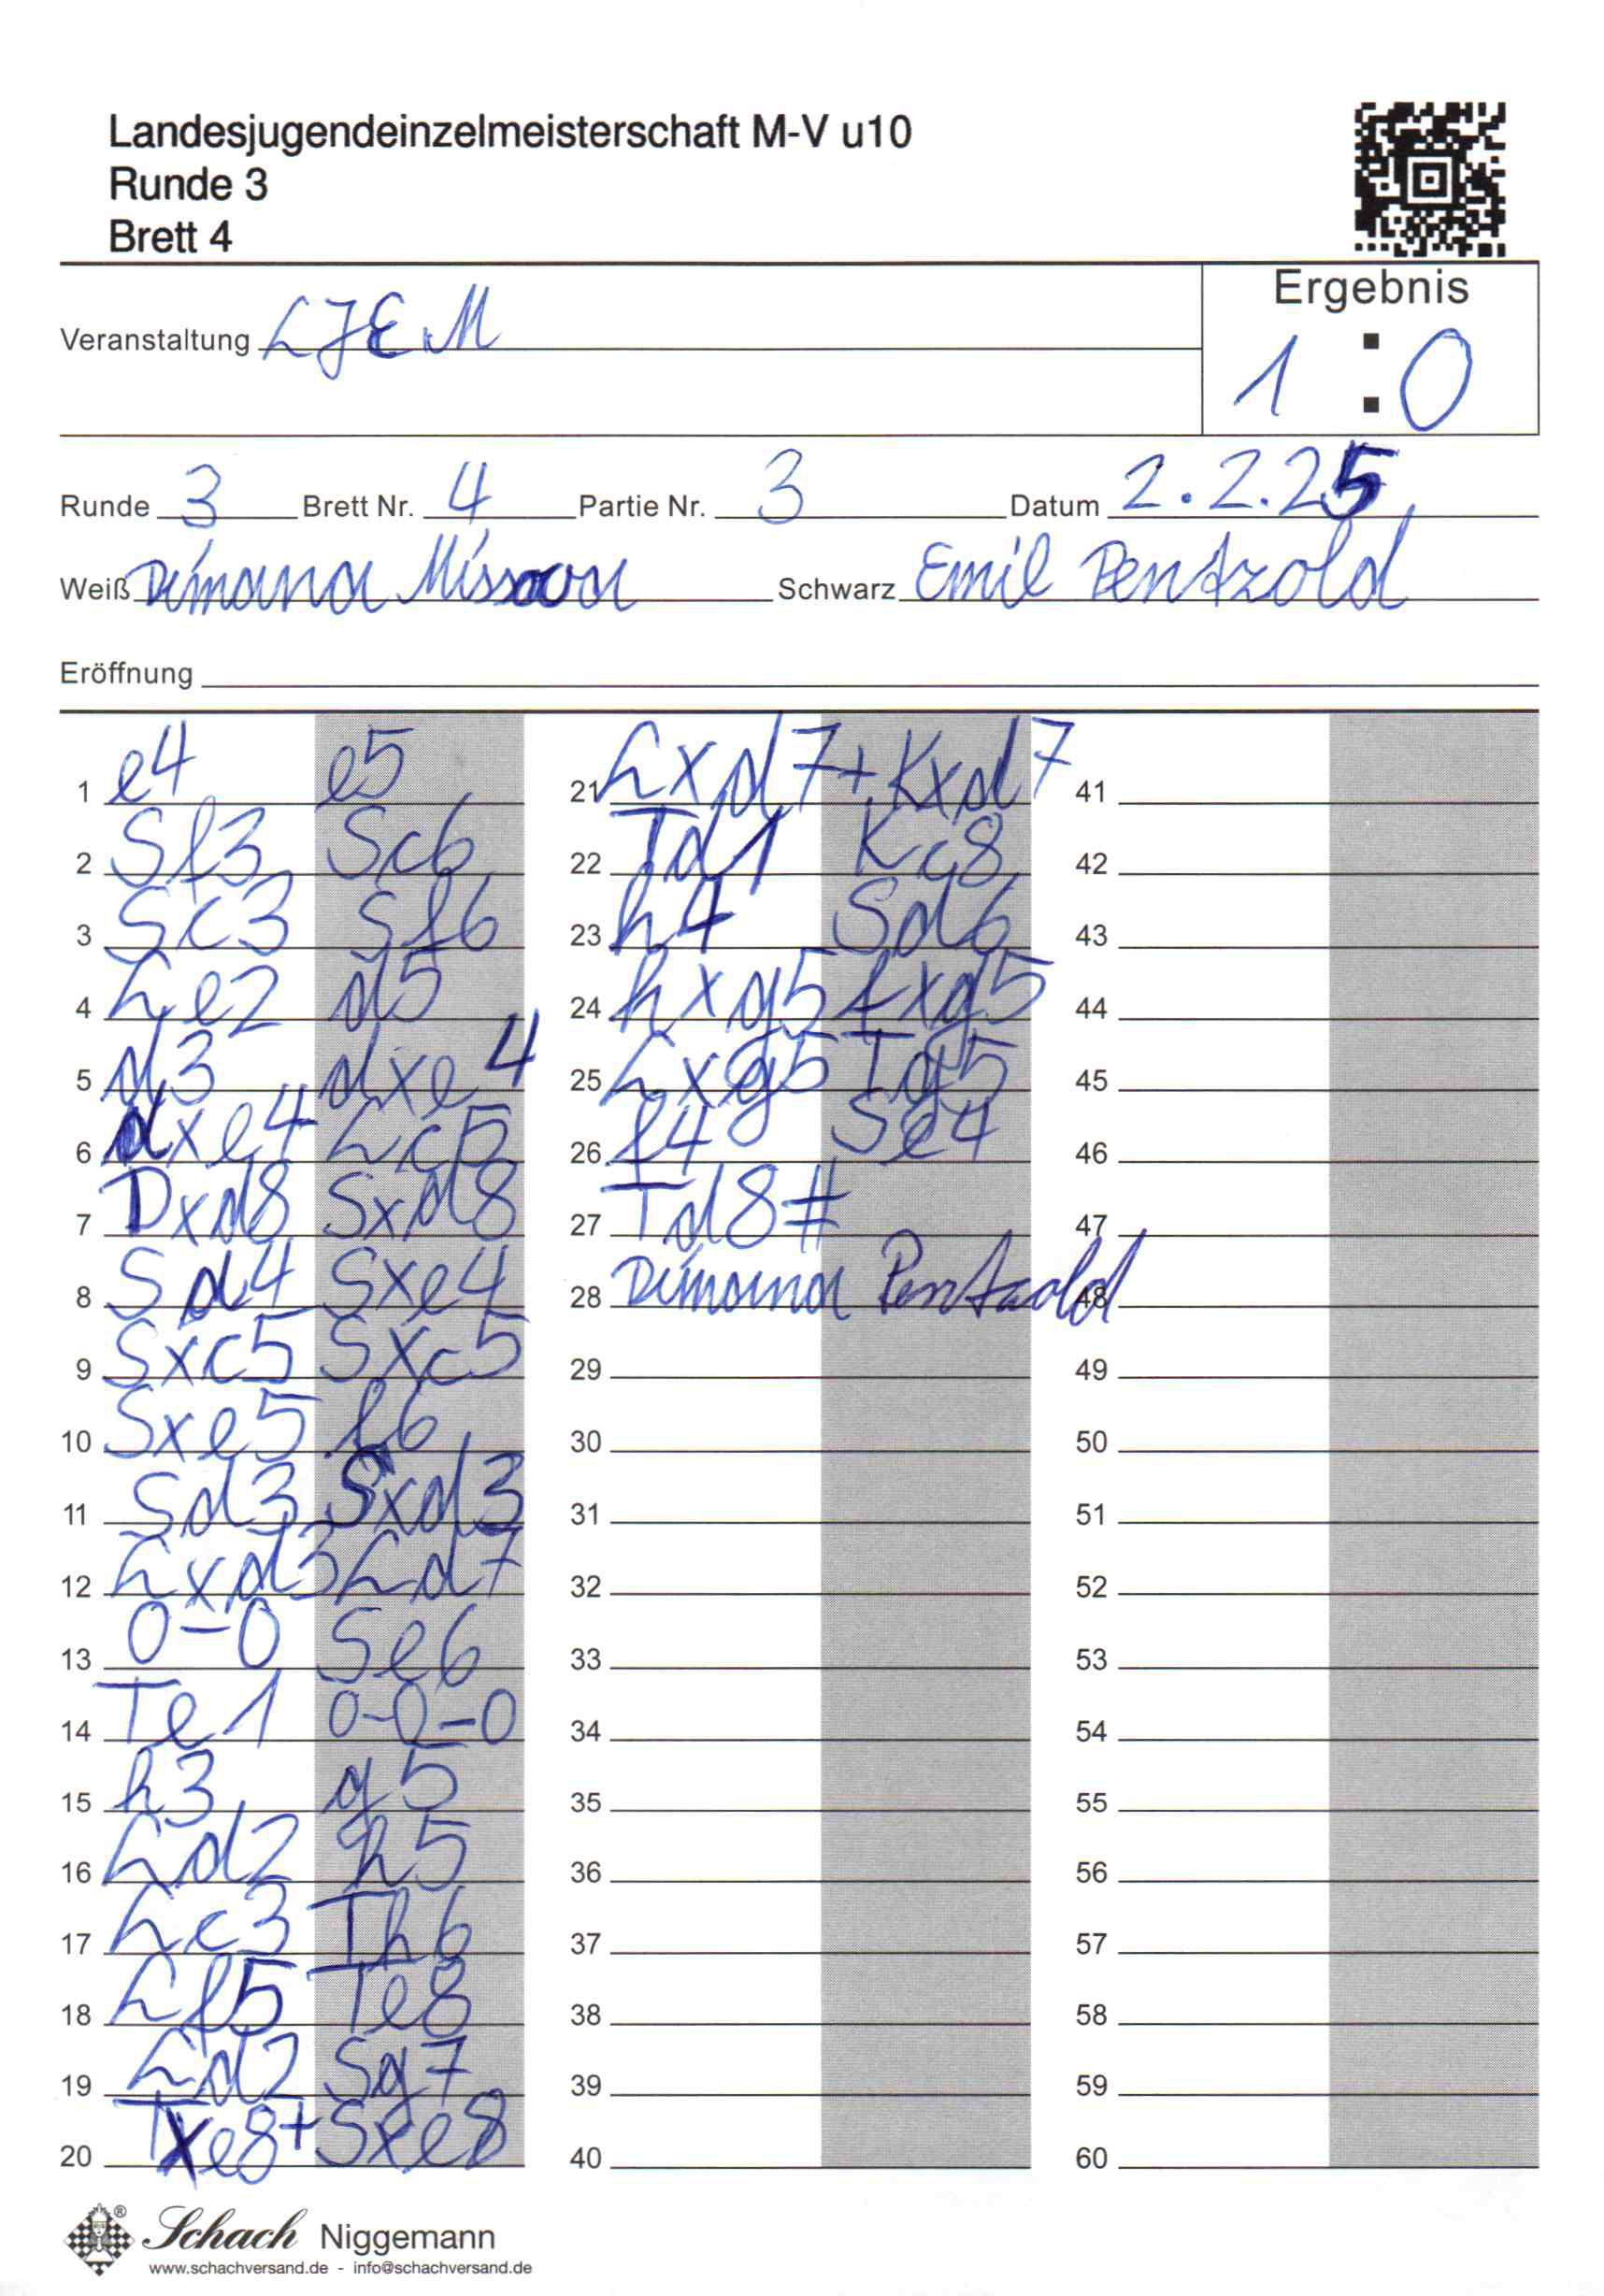 Landesjugendeinzelmeisterschaft M-V u10
Runde 3
Brett 4
Ergebnis
Veranstaltung LJEM
1 : 0
Runde 3 Brett Nr. 4 Partie Nr. 3 Datum 2.2.25
Weiß Dimana Schwarz Emil Pentzold
Eröffnung
1 e4 e5
2 Sf3 Sc6
3 Sc3 Sf6
4 Le2 d5
5 d3 dxe4
6 dxe4 Lc5
7 Dxd8 Sxd8
8 Sd4 Sxe4
9 Sxc5 Sxc5
10 Sxe5 f6
11 Sd3 Sxd3
12 Lxd3 Ld7
13 0-0 Se6
14 Te1 0-0-0
15 h3 g5
16 Ld2 h5
17 Lc3 Th6
18 Lf5 Te8
19 Ld2 Sg7
20 Txe8+ Sxe8
21 Lxd7+ Kxd7
22 Td1 Kc8
23 h4 Sd6
24 hxg5 fxg5
25 Lxg5 Tg5
26 f4 Se4
27 Td8#
28 Dimana Pentzold
29
30
31
32
33
34
35
36
37
38
39
40
41
42
43
44
45
46
47
48
49
50
51
52
53
54
55
56
57
58
59
60
Schach Niggemann
www.schachversand.de - info@schachversand.de